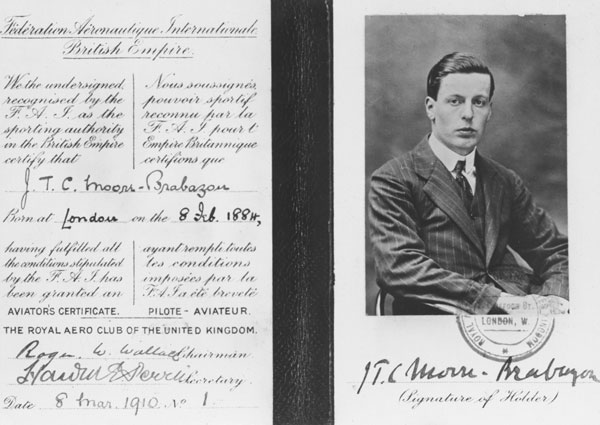 Fédération Aéronautique Internationale
British Empire.
We the undersigned
recognised by the
F. A. I. as the
sporting authority
in the British Empire
certify that
Nous soussignés
pouvoir sportif
reconnu par la
F. A. I. pour l'
Empire Britannique
certifions que
J. T. C. Moore-Brabazon
Born at London on the 8 Feb. 1884,
having fulfilled all
the conditions stipulated
by the F. A. I. has
been granted an
ayant rempli toutes
les conditions
imposées par la
F.A.I. a été breveté
AVIATOR'S CERTIFICATE. PILOTE - AVIATEUR.
THE ROYAL AERO CLUB OF THE UNITED KINGDOM.
Roger W. Wallace Chairman
Harold E Perrin Secretary.
Date 8 Mar. 1910. No 1.
LONDON, W.
J T. C Moore-Brabazon
(Signature of Holder)